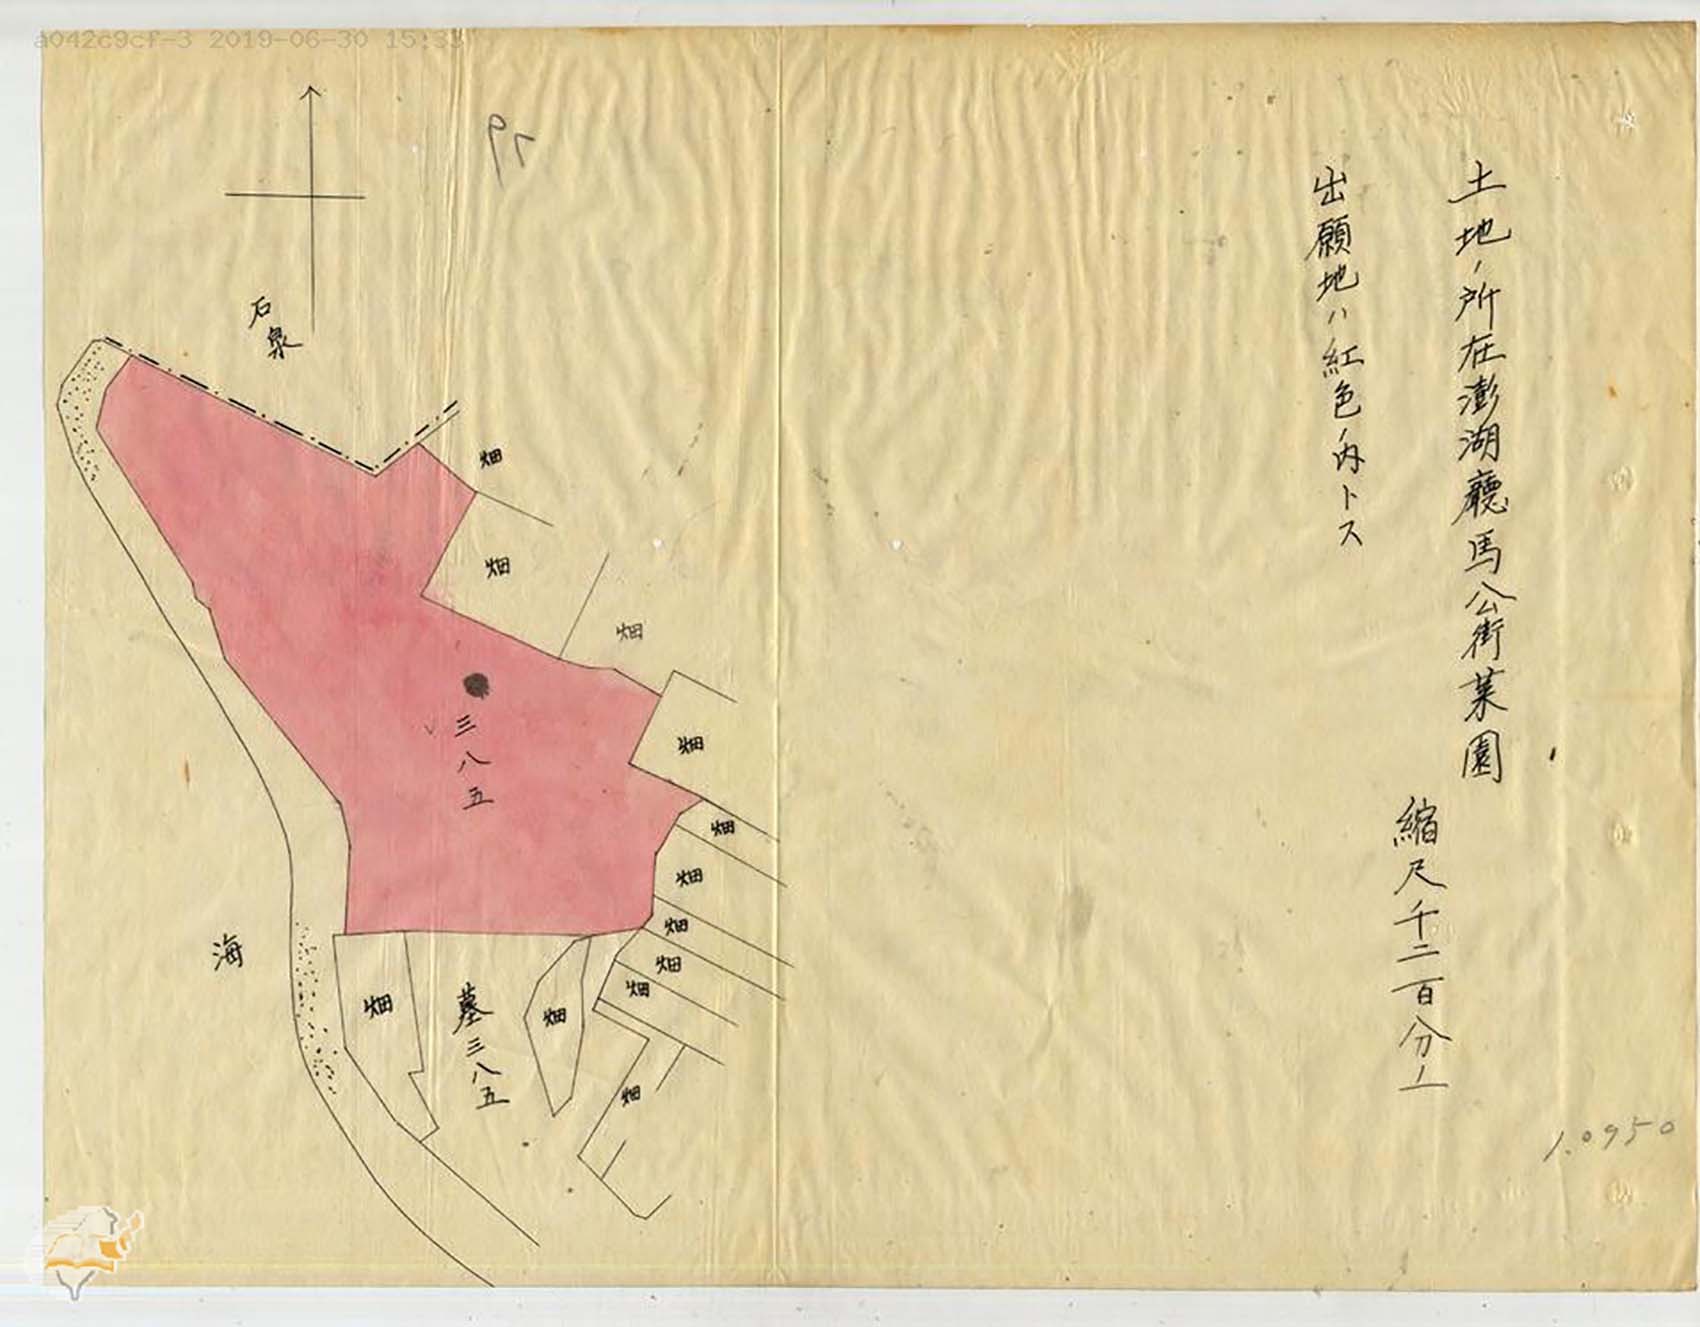 a042c9cf-3 2019-06-30 15:33
土地ノ所在澎湖廳馬公街菜園
縮尺千二百分ノ一
出願地ハ紅色ノ内トス
1.0950
79
石泉
畑
畑
畑
畑
三八五
畑
畑
畑
畑
畑
海
畑
墓三八五
畑
畑